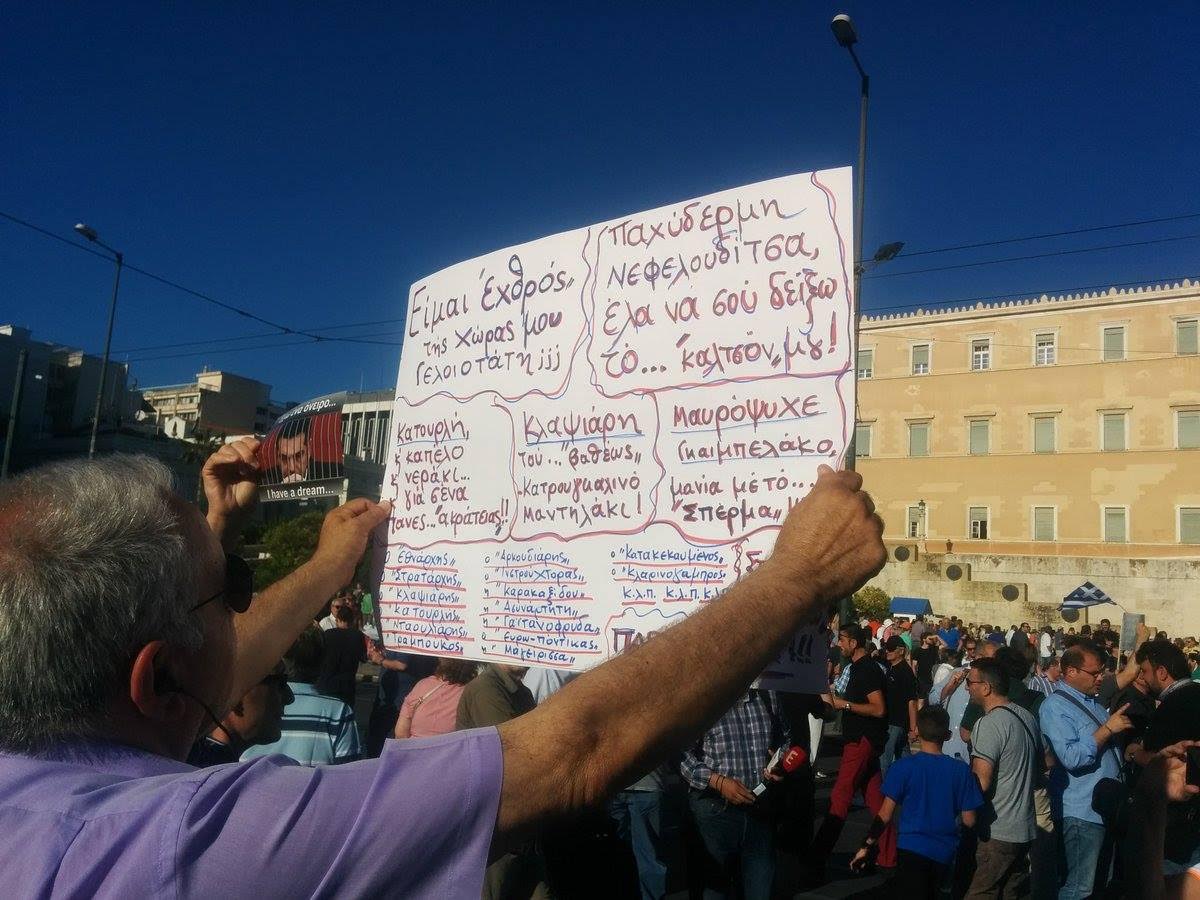 Είμαι Έχθρός„
της Χώρας μου
Γελοιοτάτη ¡¡¡
Παχύδερμη
Νεφελουδίτσα,
έλα νά σού δείξω
τό... "καλτσόν„ μγ!
Κατουρλή,
καπέλο
νεράκι...
γιά σένα
Πάνες..."ακράτειας!!
Κλαψιάρη
τού... "βαθέως„
Κατρουγκαλινό
μαντηλάκι!
Μαυρόψυχε
Γκαιμπελάκο,
μανία μέ τό...
"Σπέρμα„!!
ο "Εθνάρχης„
"Στρατάρχης„
"Κλαψιάρης„
"Κατουρλής„
Νταουλιάρης„
Τραμπούκος„
ο "Αρκουδιάρης„
ο "Ινστρουχτορας„
η "Καρακαξίδου„
η "Ασυνάρτητη„
η "Γαϊτανοφρύδα„
ο "Ευρω-πόντικας„
η "Μαγείρισσα„
ο "Κατακεκαυμένος„
ο "Κλαρινογαμπρος„
Κ.λ.π. Κ.λ.π.
ένα όνειρο...
I have a dream...
E